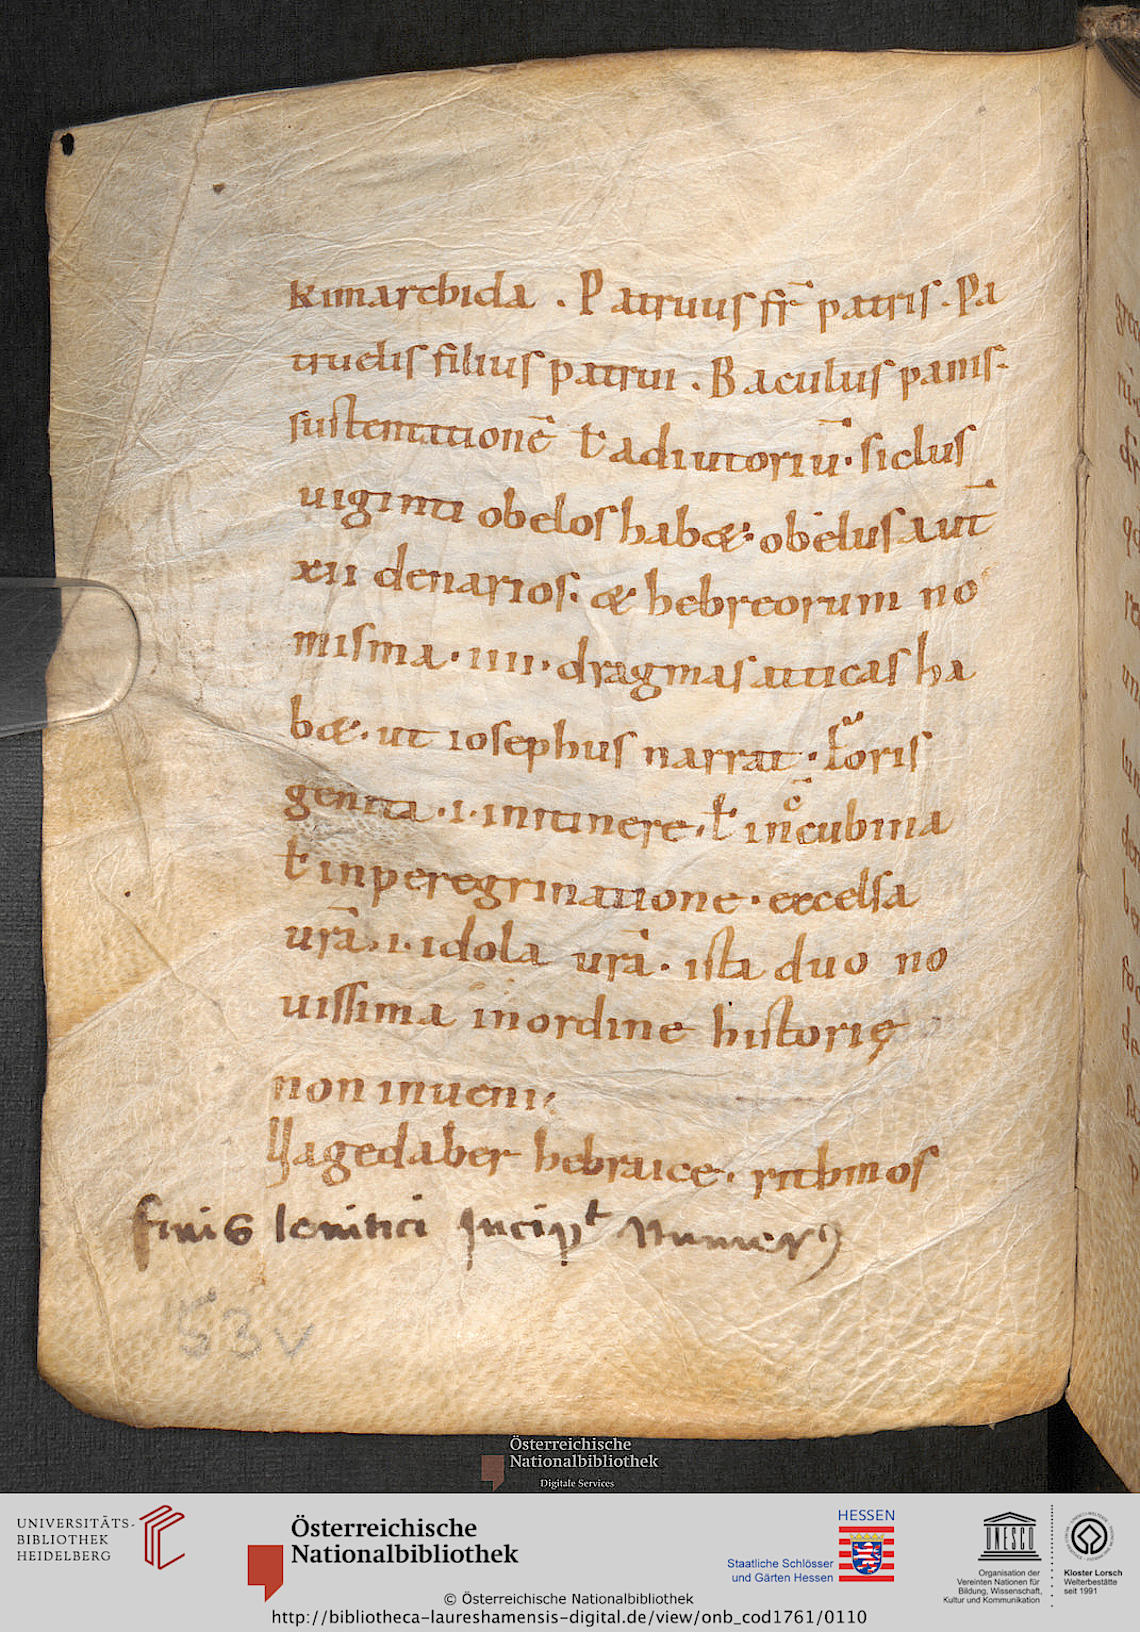 kimarchida . Patruus fr̄ patris . Pa
truelis filius patrui . Baculus panis ·
sustentationē ł adiutoriū · siclus
uiginti obelos habæ · obelus aut̄
xii denarios · & hebreorum no
misma · iiii · dragmas atticas ha
bæ · ut iosephus narrat · foris
genita · i · initinere · ł incubina
ł inperegrinatione · excelsa
urā · i · idola urā · ista duo no
uissima inordine historię
non inueni
Uagedaber hebraice · rithmos
finis leuitici Incipt Numerꝰ
53v
Österreichische
Nationalbibliothek
Digitale Services
UNIVERSITÄTS-
BIBLIOTHEK
HEIDELBERG
Österreichische
Nationalbibliothek
HESSEN
Staatliche Schlösser
und Gärten Hessen
UNESCO
Organisation der
Vereinten Nationen für
Bildung, Wissenschaft,
Kultur und Kommunikation
Kloster Lorsch
Welterbestätte
seit 1991
© Österreichische Nationalbibliothek
http://bibliotheca-laureshamensis-digital.de/view/onb_cod1761/0110